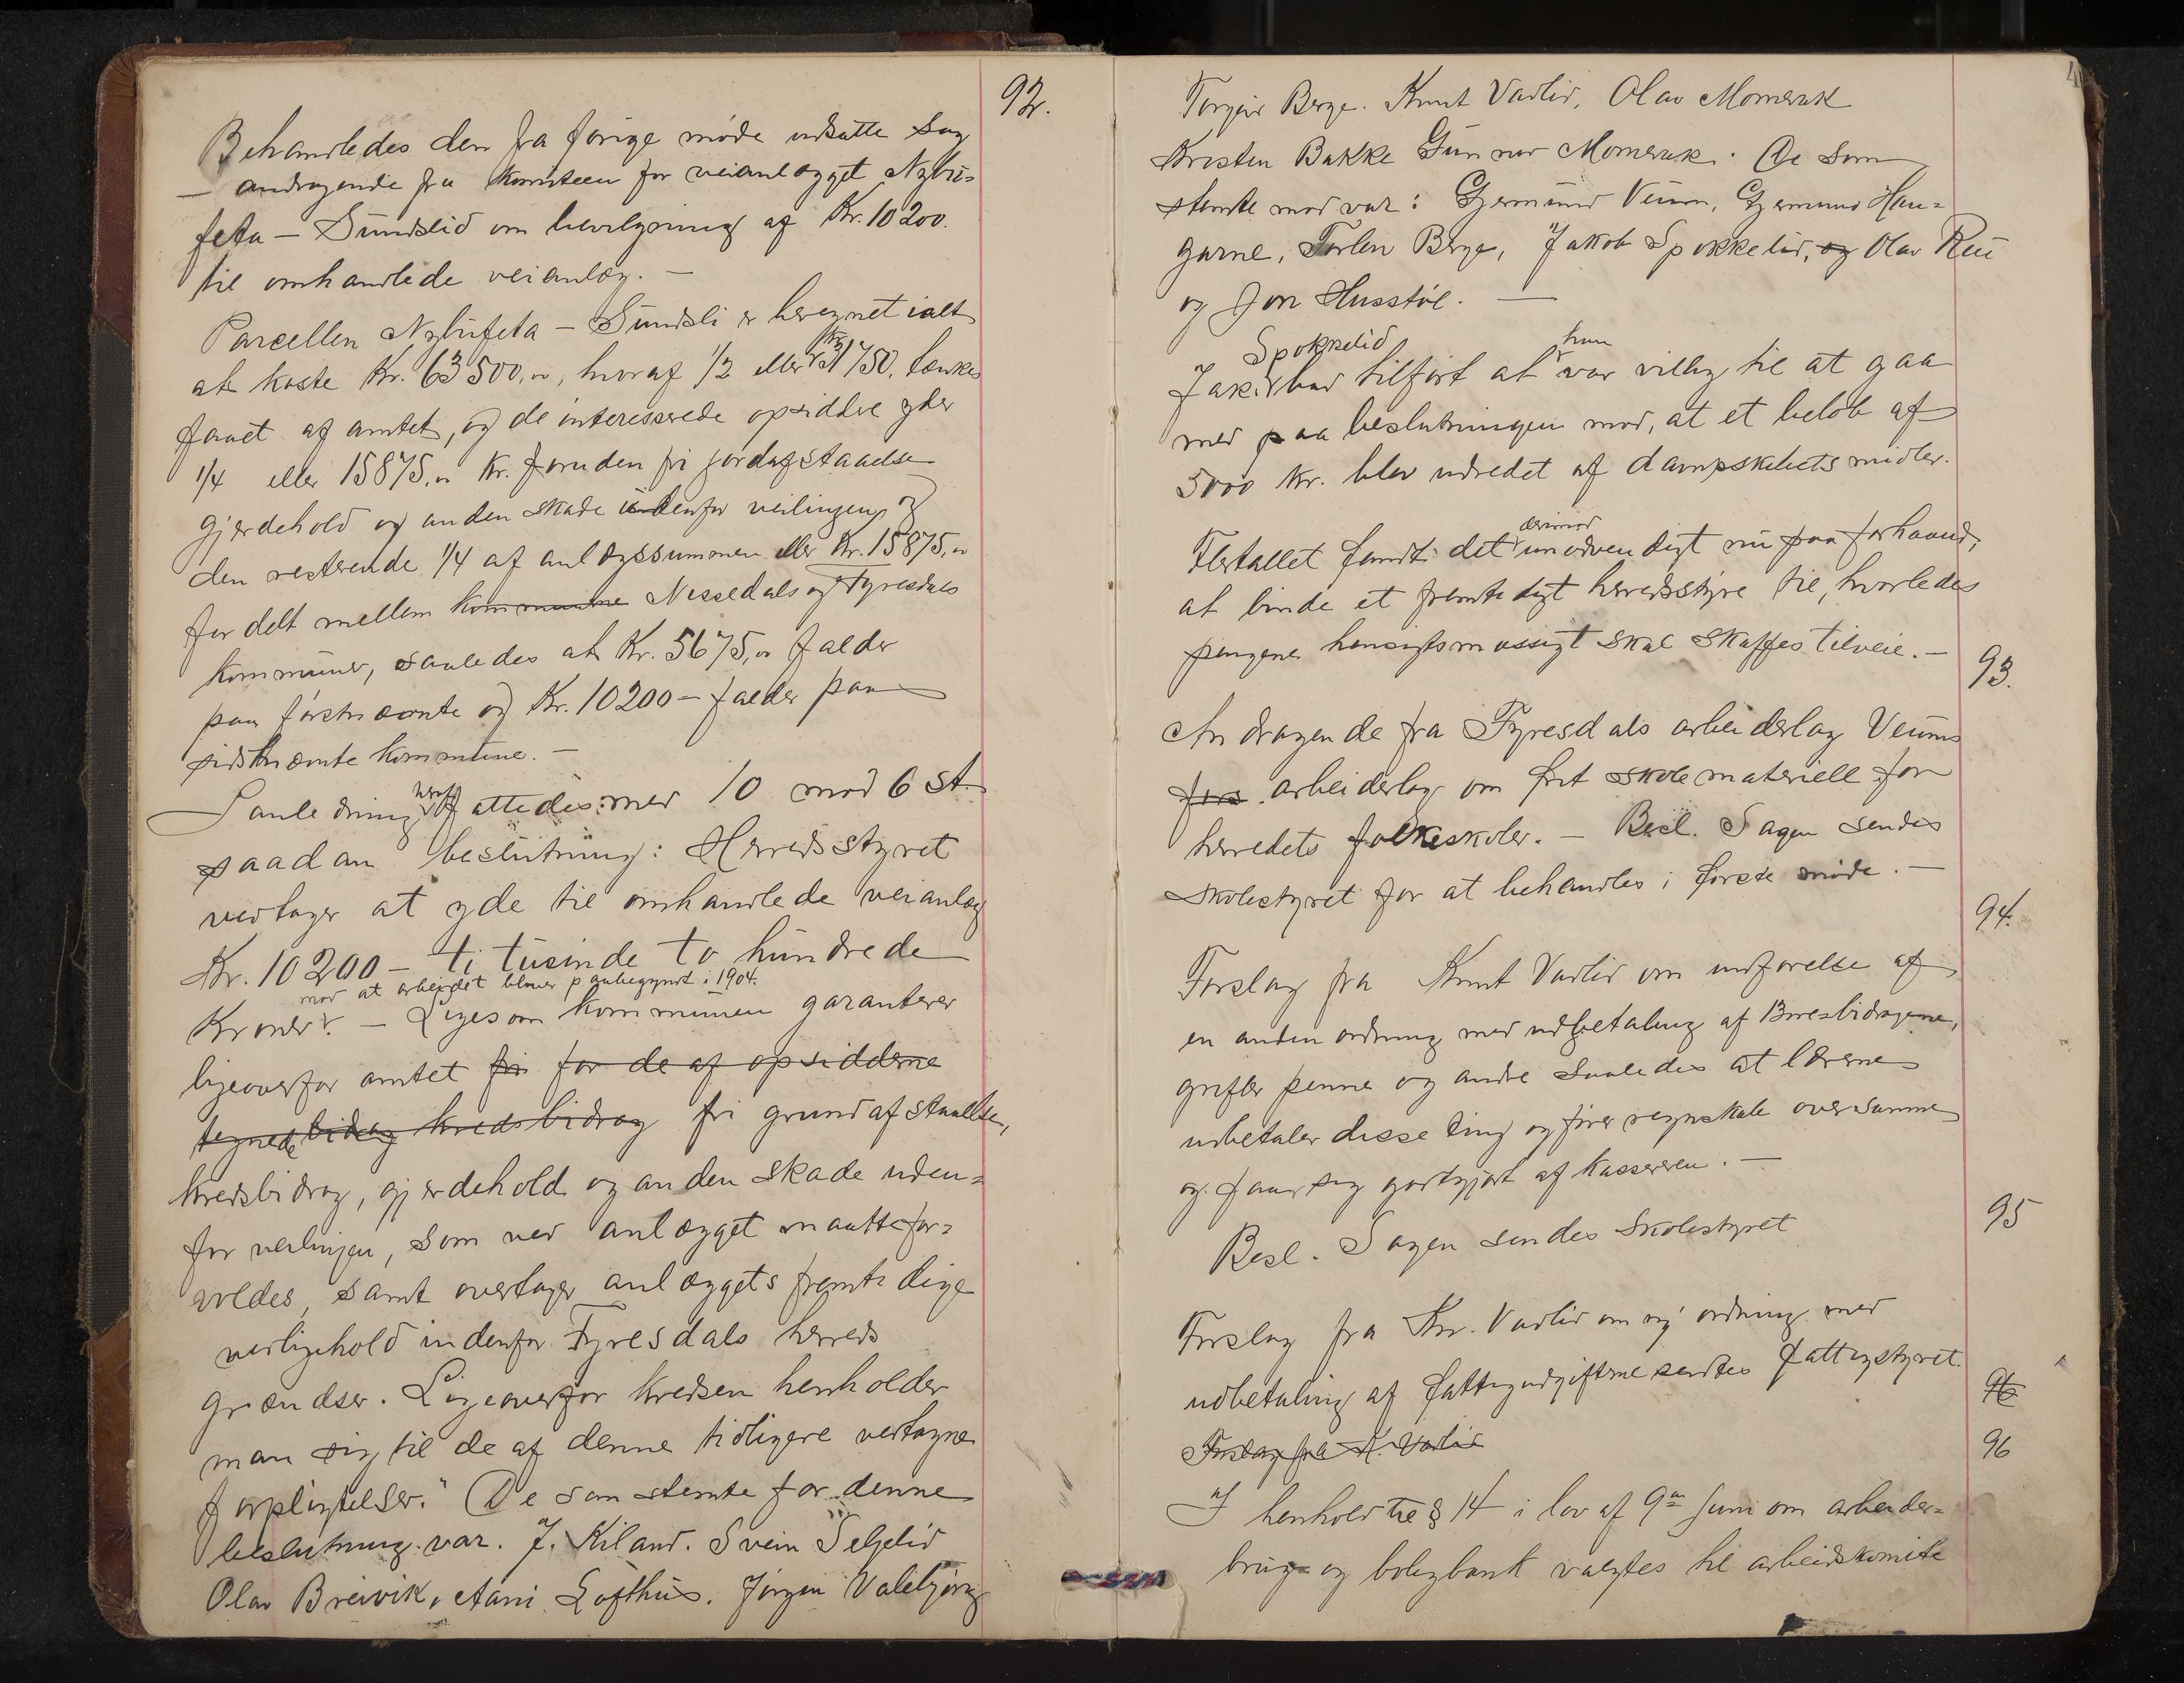 92.
Behandledes den fra forige møde udsatte sag
— andragende fra komiteen for veianlægget Nybu=
feta — Sundslid om bevilgning af Kr. 10200.
til omhandlede veianlæg. —
Parcellen Nybufeta — Sundsli er beregnet ialt
at koste Kr. 63500,00, hvoraf 1/2 eller kr 31750, tænkes
faaet af amtet, og de interesserede opsiddere yder
1/4 eller 15875,00 Kr. foruden fri jordafstaaelse
gjerdehold og anden skade udenfor veilinjen, og
den resterende 1/4 af anlægssummen eller Kr. 15875,00
fordelt mellem kommunerne Nissedals og Fyresdals
kommuner, saaledes at Kr. 5675,00 falder
paa førstnævnte og Kr. 10200 — falder paa
sidstnævnte kommune. —
I anledning heraf fattedes med 10 mod 6 st.
saadan beslutning: Herredsstyret
vedtager at yde til omhandlede veianlæg
Kr. 10200 — ti tusinde to hundrede
mod at arbeidet bliver paabegyndt i 1904.
Kroner. — Ligesom kommunen garanterer
ligeoverfor amtet fri for de af opsidderne
tegnede bidrag kredsbidrag fri grundafstaaelse,
kredsbidrag, gjerdehold og anden skade uden=
for veilinjen, som ved anlægget maatte for=
voldes, samt overtager anlæggets fremtidige
vedligehold indenfor Fyresdals herreds
grændser. Ligeoverfor kredsen henholder
man sig til de af denne tidligere vedtagne
forpligtelser." De som stemte for denne
beslutning var. J. Kiland. Svein Seljelid
Olav Breivik, Aani Lofthus. Jørgen Valebjørg
Torgeir Berge. Knut Vadlid, Olav Momrak
Kristen Bakke Gunnar Momrak. De som
stemte mod var: Gjermund Veum, Gjermund Hau=
garne, Torlen Berge, Jakob Spokkelid, og Olav Rui
og Jon Husstøl. —
Spokkelid han
Jak. havd tilført at var villig til at gaa
med paa beslutningen mod, at et beløb af
5000 kr. blev udredet af dampskibets midler.
derimod
Flertallet fandt det unødvendigt nu paa forhaand,
at binde et fremtidigt herredsstyre til, hvorledes
pengene hensigtsmæssigt skal skaffes tilveie. —
93.
Andragende fra Fyresdals arbeiderlag Veums
fors arbeiderlag om frit skolemateriell for
herredets folkeskoler. — Besl. Sagen sendes
skolestyret for at behandles i første møde. —
94.
Forslag fra Knut Vadlid om indførelse af
en anden ordning med udbetaling af Brevbidragene,
grifler penne og andre saaledes at lærerne
udbetaler disse ting og fører regnskab over samme
og faar sig godtgjort af kassereren. —
95
Besl. Sagen sendes Skolestyret
Forslag fra Kn. Vadlid om ny ordning med
udbetaling af fattigudgifterne sendtes fattigstyret.
96
Forslag fra K. Vadlid
96
I henhold til § 14 i lov af 9de Juni om arbeider=
brug= og boligbank valgtes til arbeidskomite